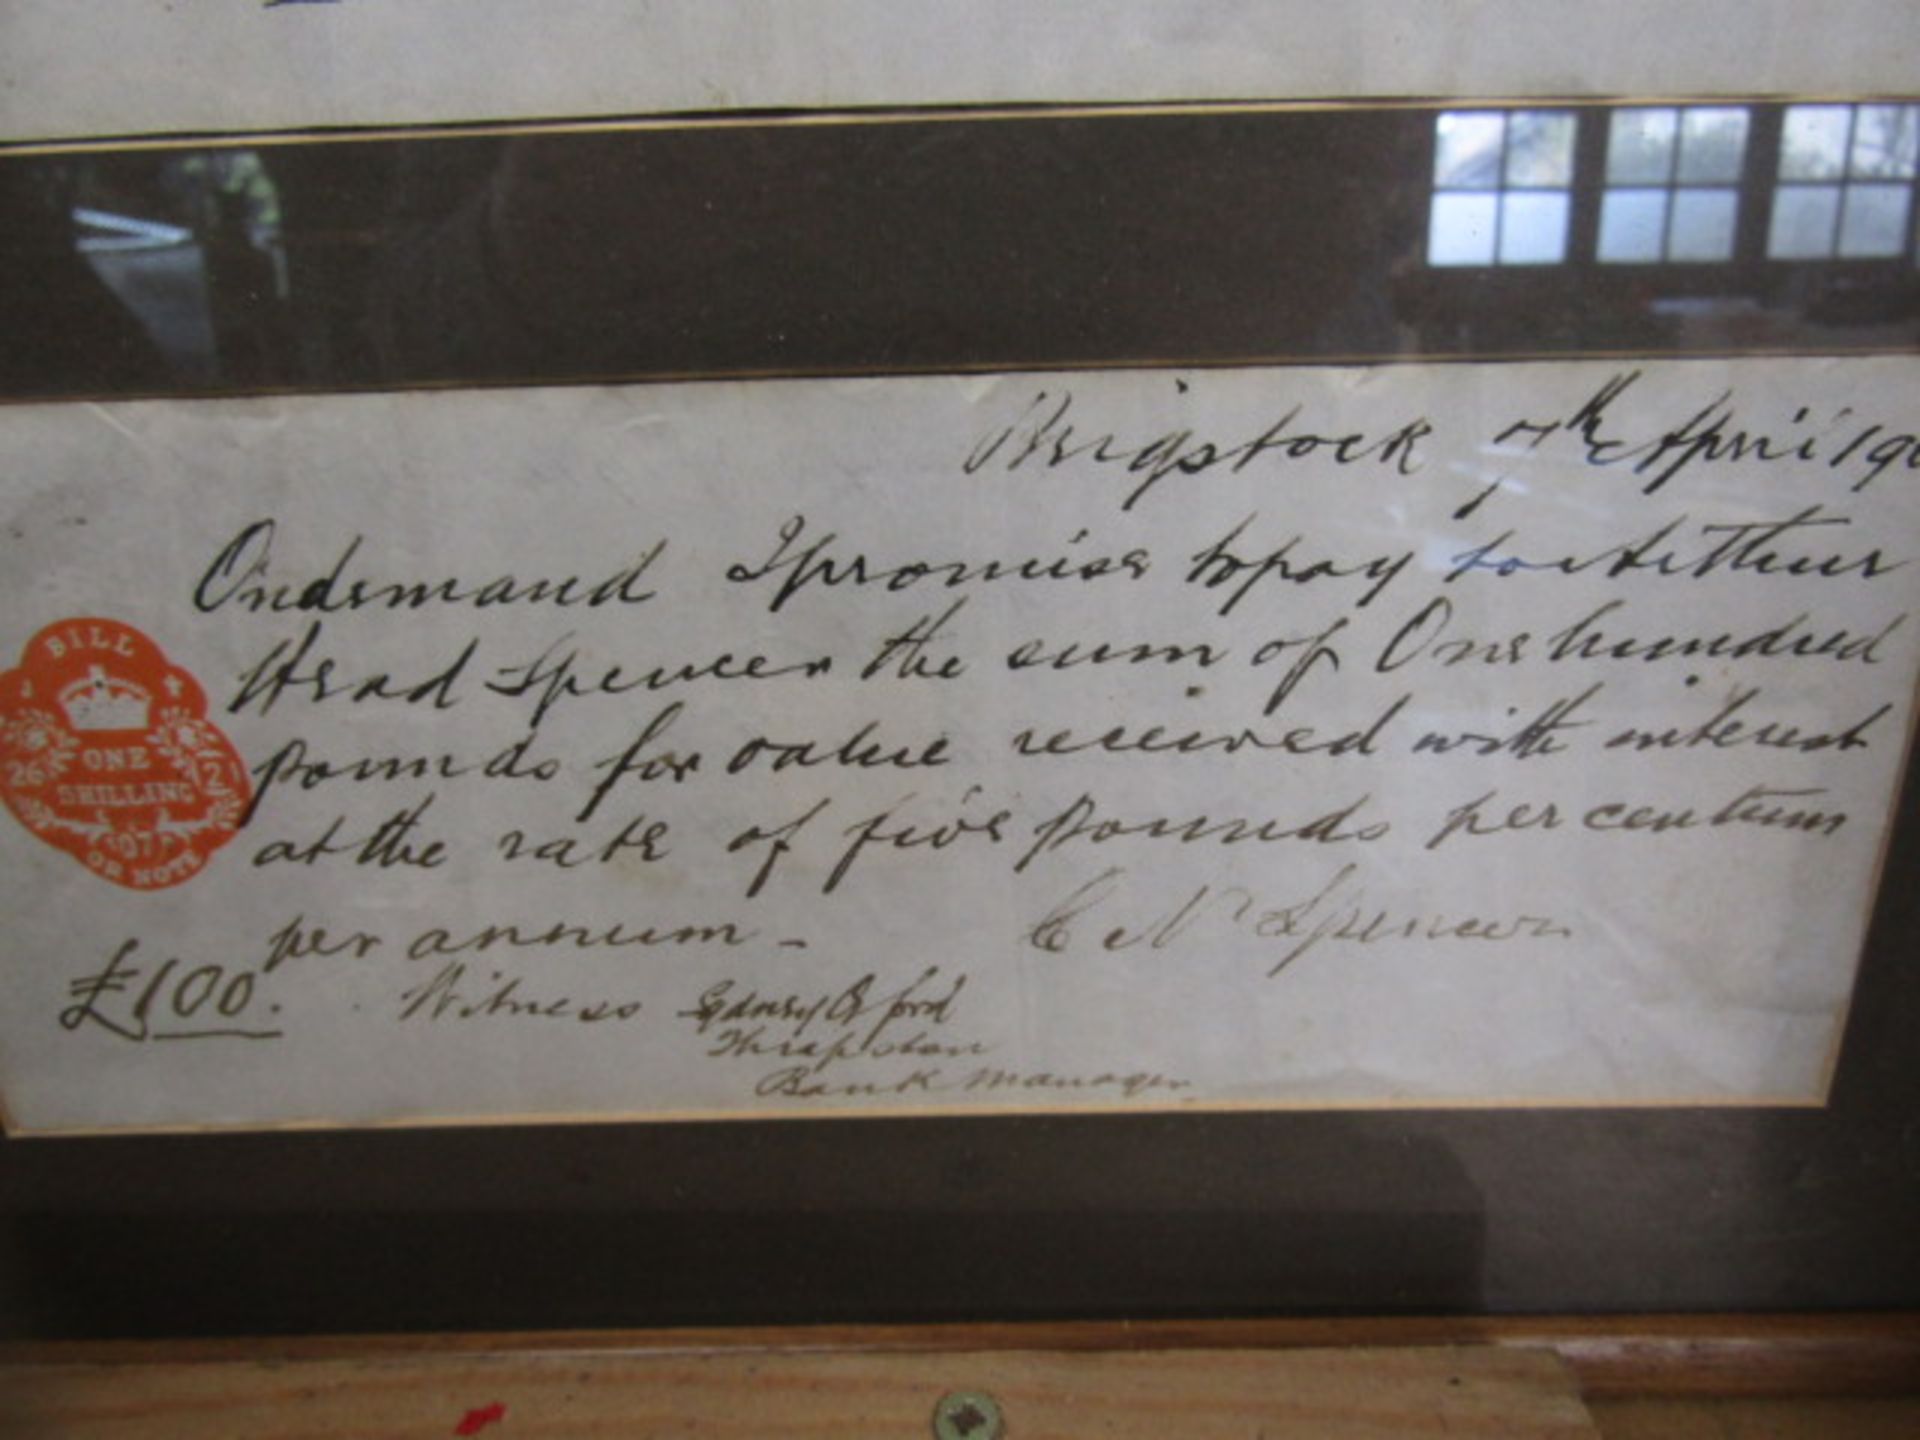 Brigstock 7th April 190
On demand I promise to pay to Arthur
Head Spencer the sum of One hundred
pounds for value received with interest
at the rate of five pounds per centum
per annum -
C N Spencer
£100.
Witness Sydney Orford
Thrapston
Bank Manager
BILL
26
2
ONE
SHILLING
07
OR NOTE